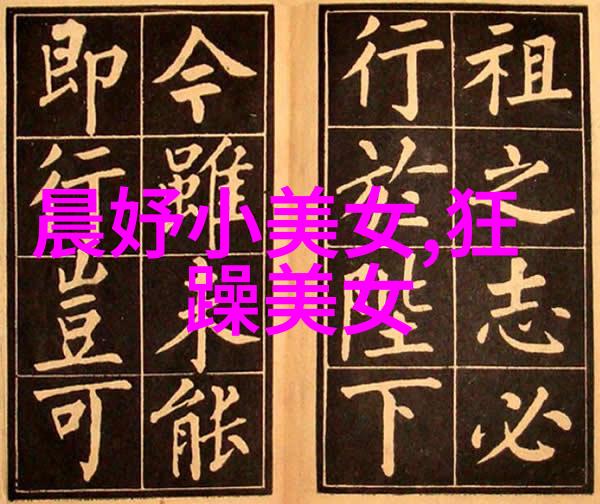 祖之志必
行於陛下
今雖未能
即行豈可
晨妤小美女,狂
躁美女